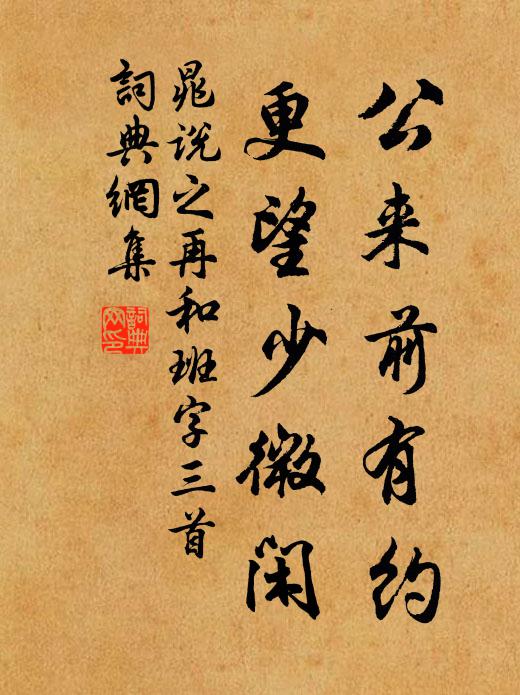 公来前有约
更望少微闲
晁说之再和班字三首
词典網集
詞典
网印